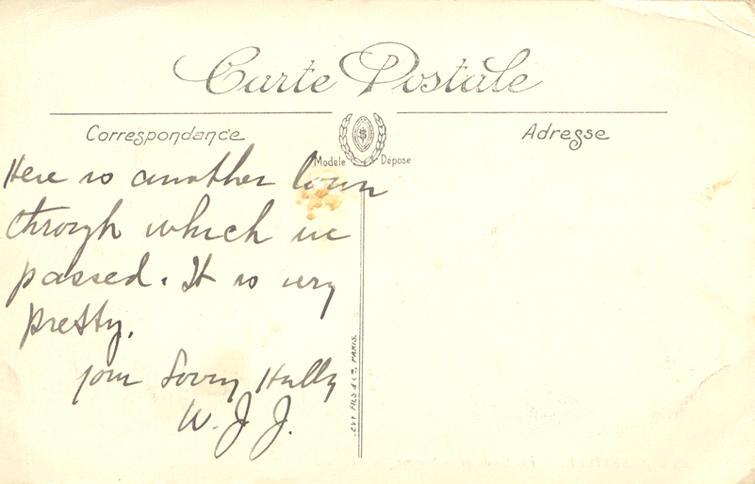 Carte Postale
Correspondance
Adresse
Modèle Déposé
Here is another town
through which we
passed. It is very
pretty.
Your Loving Hubby
W. J. J.
LEVY FILS & Cie, PARIS.